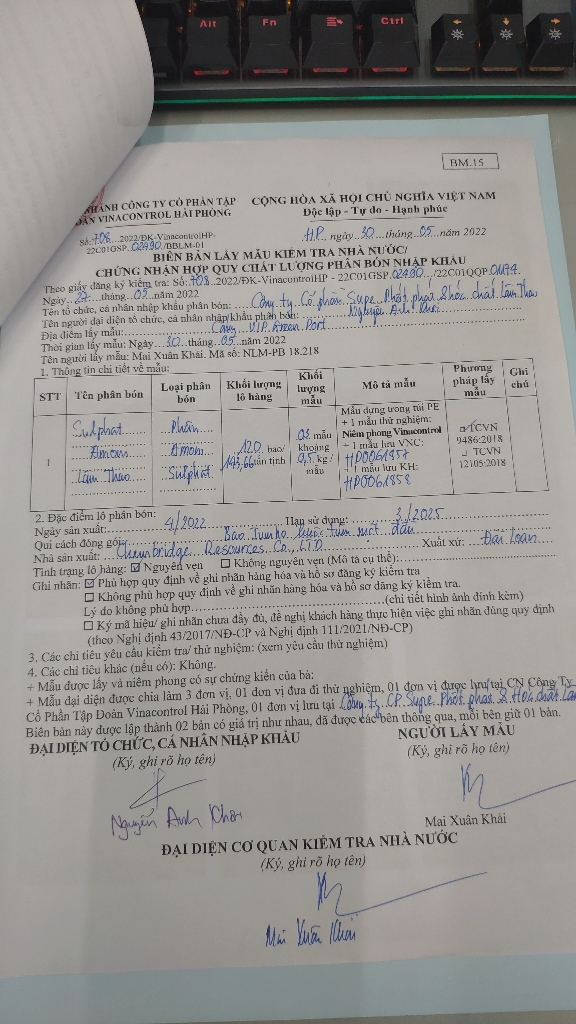 Alt Fn Ctrl
BM.15
NHÁNH CÔNG TY CỔ PHẦN TẬP CỘNG HÒA XÃ HỘI CHỦ NGHĨA VIỆT NAM
ĐOÀN VINACONTROL HẢI PHÒNG Độc lập - Tự do - Hạnh phúc
Số: 708...2022/ĐK-VinacontrolHP- HP, ngày 30 tháng 05 năm 2022
22C01GSP 02490/BBLM-01
BIÊN BẢN LẤY MẪU KIỂM TRA NHÀ NƯỚC/
CHỨNG NHẬN HỢP QUY CHẤT LƯỢNG PHÂN BÓN NHẬP KHẨU
Theo giấy đăng ký kiểm tra: Số: 708..2022/ĐK-VinacontrolHP - 22C01GSP 02490.../22C01QQP 01194
Ngày..27...tháng..05...năm 2022
Tên tổ chức, cá nhân nhập khẩu phân bón: Công ty Cổ phần Supe Phốt phát & hóa chất Lâm Thao
Tên người đại diện tổ chức, cá nhân nhập/khẩu phân bón: Nguyễn Anh Khôi
Địa điểm lấy mẫu: Cảng VIP Green Port
Thời gian lấy mẫu: Ngày 30 tháng 05 năm 2022
Tên người lấy mẫu: Mai Xuân Khải. Mã số: NLM-PB 18.218
1. Thông tin chi tiết về mẫu:
STT Tên phân bón Loại phân bón Khối lượng lô hàng Khối lượng mẫu Mô tả mẫu Phương pháp lấy mẫu Ghi chú
1 Sulphat Amoni Lâm Thao Phân Amoni Sulphat 120 bao/ tấn tịnh 03 mẫu khoảng 0,5 kg/ mẫu
Mẫu đựng trong túi PE
+ 1 mẫu thử nghiệm:
Niêm phong Vinacontrol
+ 1 mẫu lưu VNC:
HP0061857
+ 1 mẫu lưu KH:
HP0061858
TCVN 9486:2018
☐ TCVN 12105:2018
2. Đặc điểm lô phân bón:
Ngày sản xuất: 4/2022 Hạn sử dụng: 3/2025
Qui cách đóng gói: Bao Jumbo
Nhà sản xuất: Chembridge Resources Co., LTD Xuất xứ: Đài Loan
Tình trạng lô hàng: ☑ Nguyên vẹn ☐ Không nguyên vẹn (Mô tả cụ thể):
Ghi nhãn: ☑ Phù hợp quy định về ghi nhãn hàng hóa và hồ sơ đăng ký kiểm tra
☐ Không phù hợp quy định về ghi nhãn hàng hóa và hồ sơ đăng ký kiểm tra.
Lý do không phù hợp (chi tiết hình ảnh đính kèm)
☐ Ký mã hiệu/ ghi nhãn chưa đầy đủ, đề nghị khách hàng thực hiện việc ghi nhãn đúng quy định
(theo Nghị định 43/2017/NĐ-CP và Nghị định 111/2021/NĐ-CP)
3. Các chỉ tiêu yêu cầu kiểm tra/ thử nghiệm: (xem yêu cầu thử nghiệm)
4. Các chỉ tiêu khác (nếu có): Không.
+ Mẫu được lấy và niêm phong có sự chứng kiến của bà:
+ Mẫu đại diện được chia làm 3 đơn vị, 01 đơn vị đưa đi thử nghiệm, 01 đơn vị được lưu tại CN Công Ty
Cổ Phần Tập Đoàn Vinacontrol Hải Phòng, 01 đơn vị lưu tại Công ty CP Supe Phốt phát & Hóa chất Lâm
Biên bản này được lập thành 02 bản có giá trị như nhau, đã được các bên thông qua, mỗi bên giữ 01 bản.
ĐẠI DIỆN TỔ CHỨC, CÁ NHÂN NHẬP KHẨU NGƯỜI LẤY MẪU
(Ký, ghi rõ họ tên) (Ký, ghi rõ họ tên)
Nguyễn Anh Khôi Mai Xuân Khải
ĐẠI DIỆN CƠ QUAN KIỂM TRA NHÀ NƯỚC
(Ký, ghi rõ họ tên)
Mai Xuân Khải